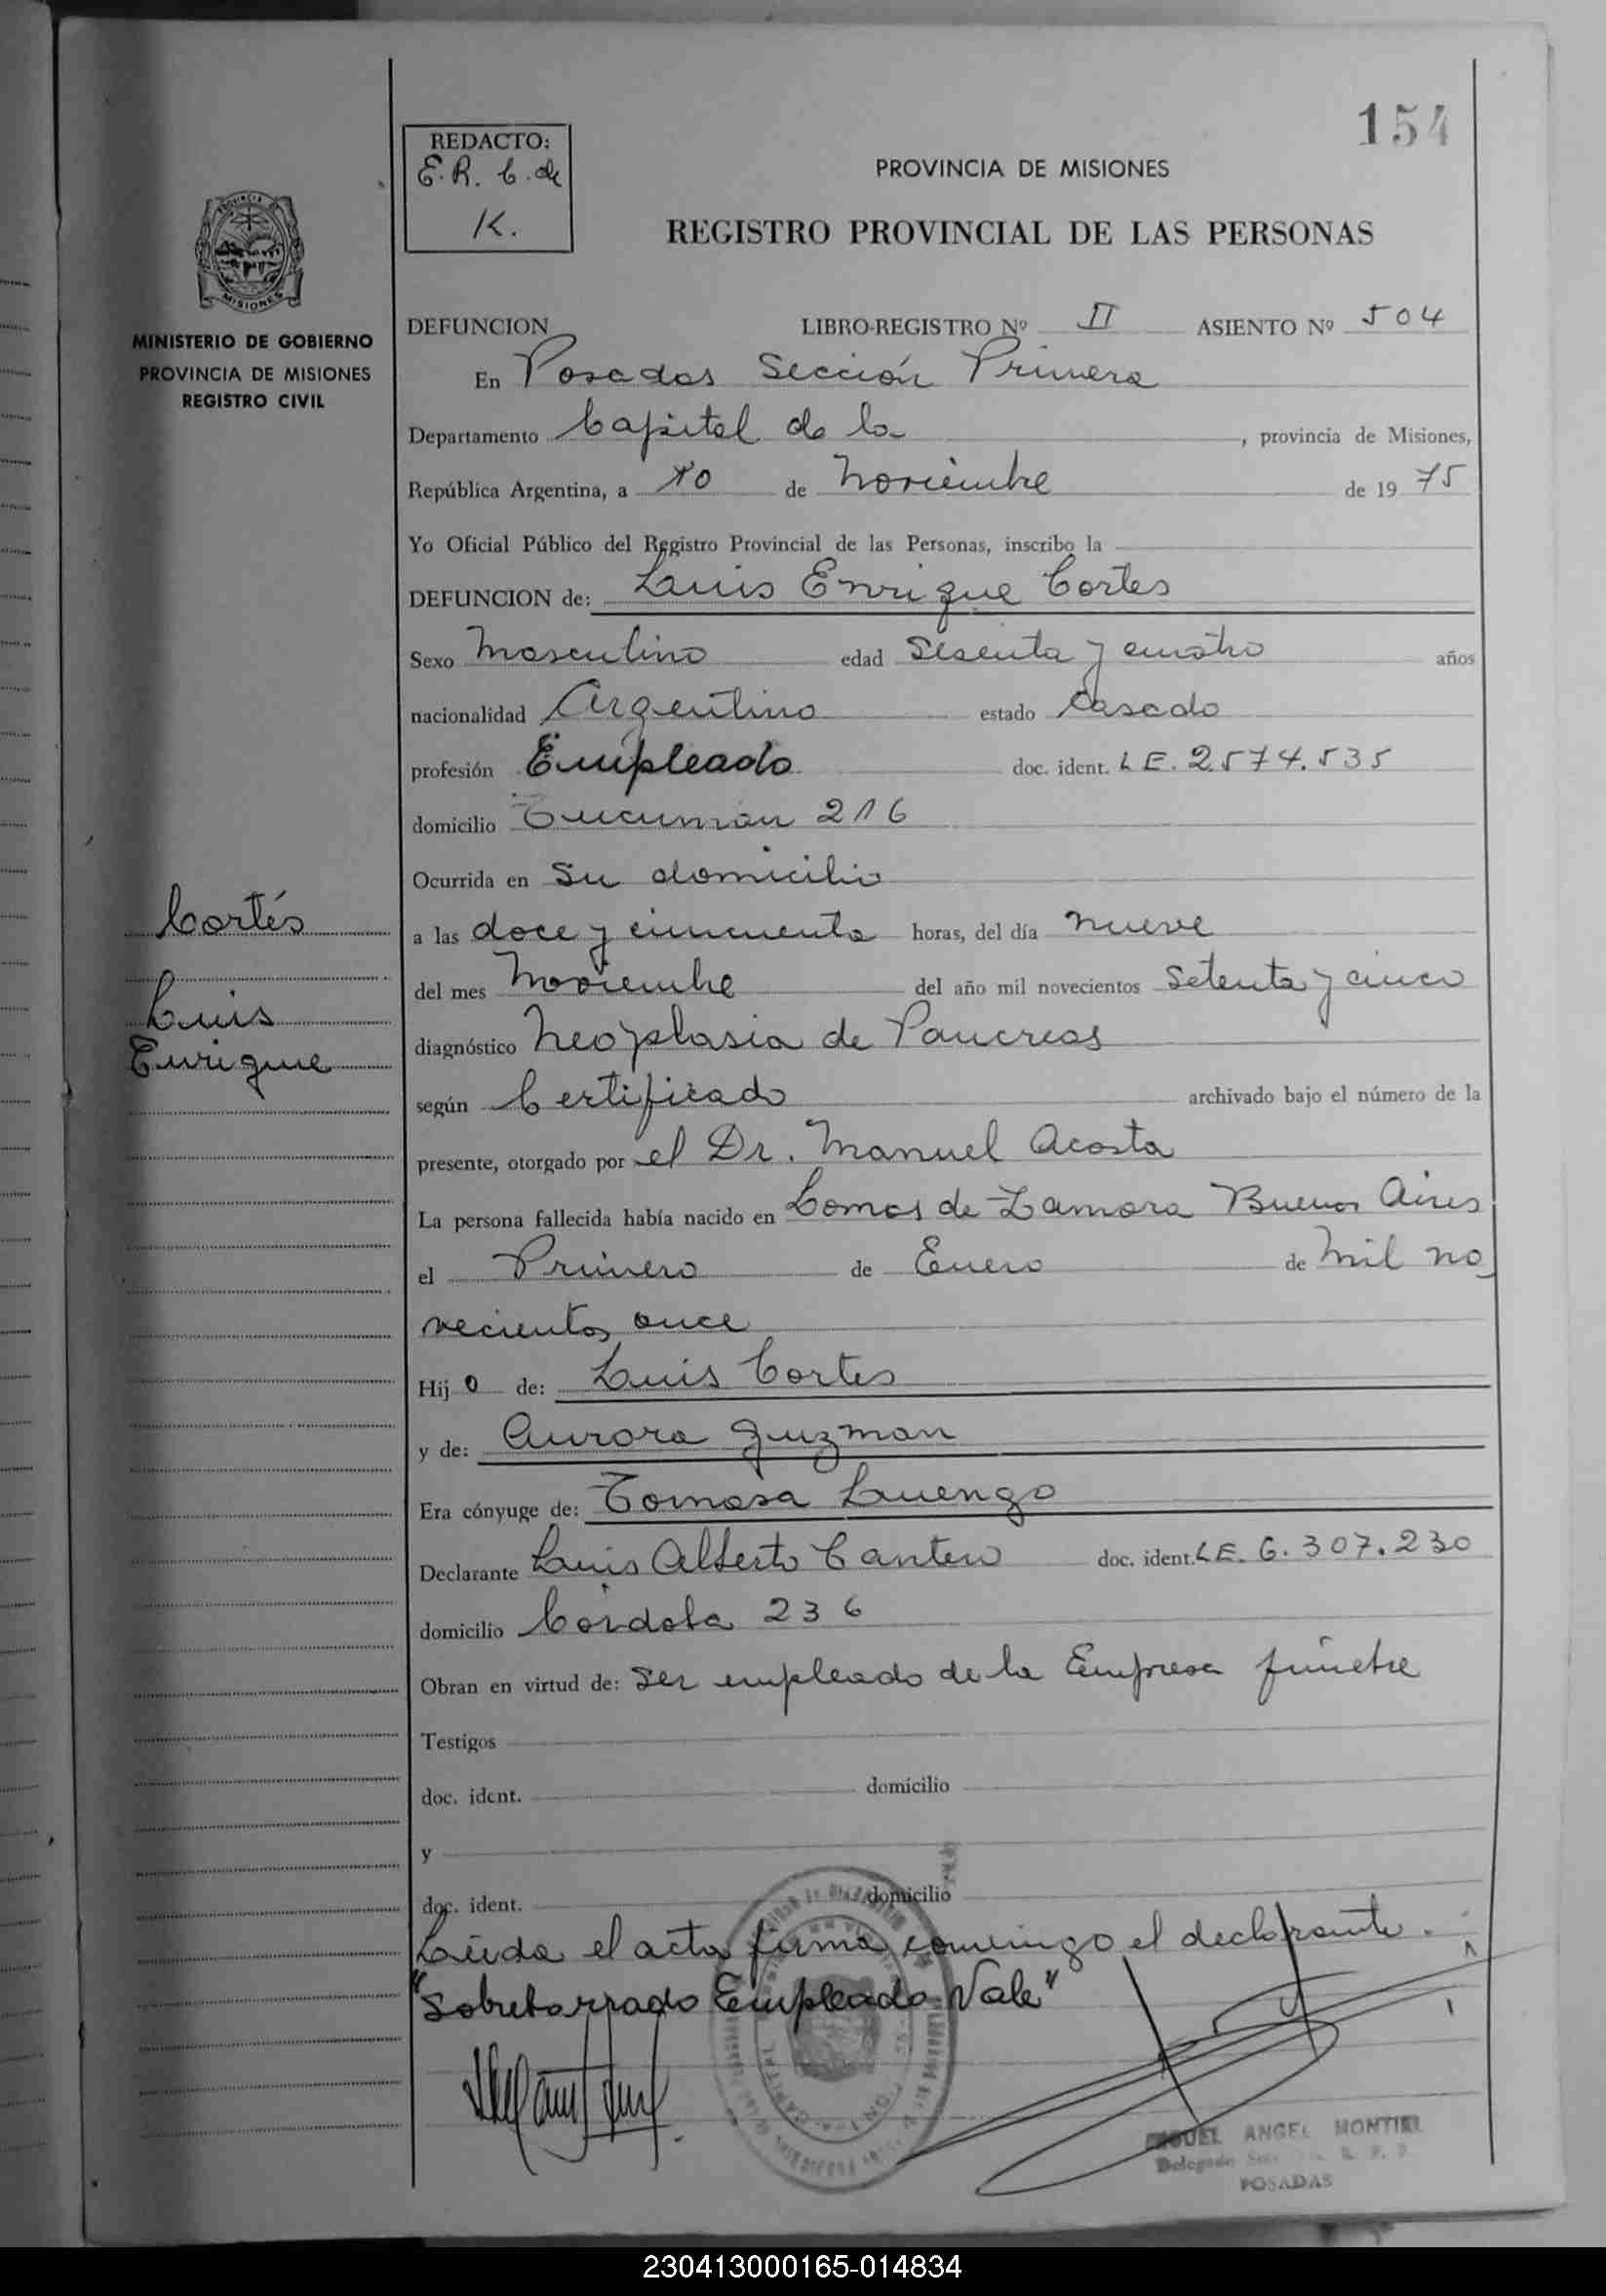 154
REDACTO:
E. R. C. de
K.
PROVINCIA DE MISIONES
REGISTRO PROVINCIAL DE LAS PERSONAS
MISIONES
MINISTERIO DE GOBIERNO
PROVINCIA DE MISIONES
REGISTRO CIVIL
DEFUNCION LIBRO-REGISTRO Nº II ASIENTO Nº 504
En Posadas Sección Primera
Departamento Capital de la , provincia de Misiones,
República Argentina, a 10 de Noviembre de 19 75
Yo Oficial Público del Registro Provincial de las Personas, inscribo la
DEFUNCION de: Luis Enrique Cortes
Sexo Masculino edad Sesenta y cuatro años
nacionalidad Argentino estado Casado
profesión Empleado doc. ident. L E. 2.574.535
domicilio Tucumán 216
Ocurrida en Su domicilio
Cortés
Luis
Enrique
a las doce y cincuenta horas, del día nueve
del mes Noviembre del año mil novecientos Setenta y cinco
diagnóstico Neoplasia de Pancreas
según Certificado archivado bajo el número de la
presente, otorgado por el Dr. Manuel Acosta
La persona fallecida había nacido en Lomas de Zamora Buenos Aires
el Primero de Enero de Mil no
vecientos once
Hij o de: Luis Cortes
y de: Aurora Guzman
Era cónyuge de: Tomasa Luengo
Declarante Luis Alberto Cantero doc. ident. L E. 6.307.230
domicilio Córdoba 236
Obran en virtud de: Ser empleado de la Empresa fúnebre
Testigos
doc. ident. domicilio
y
doc. ident. domicilio
Leída el acta firma conmigo el declarante.
"Sobreborrado Empleado Vale"
MIGUEL ANGEL MONTIEL
Delegado
POSADAS
230413000165-014834